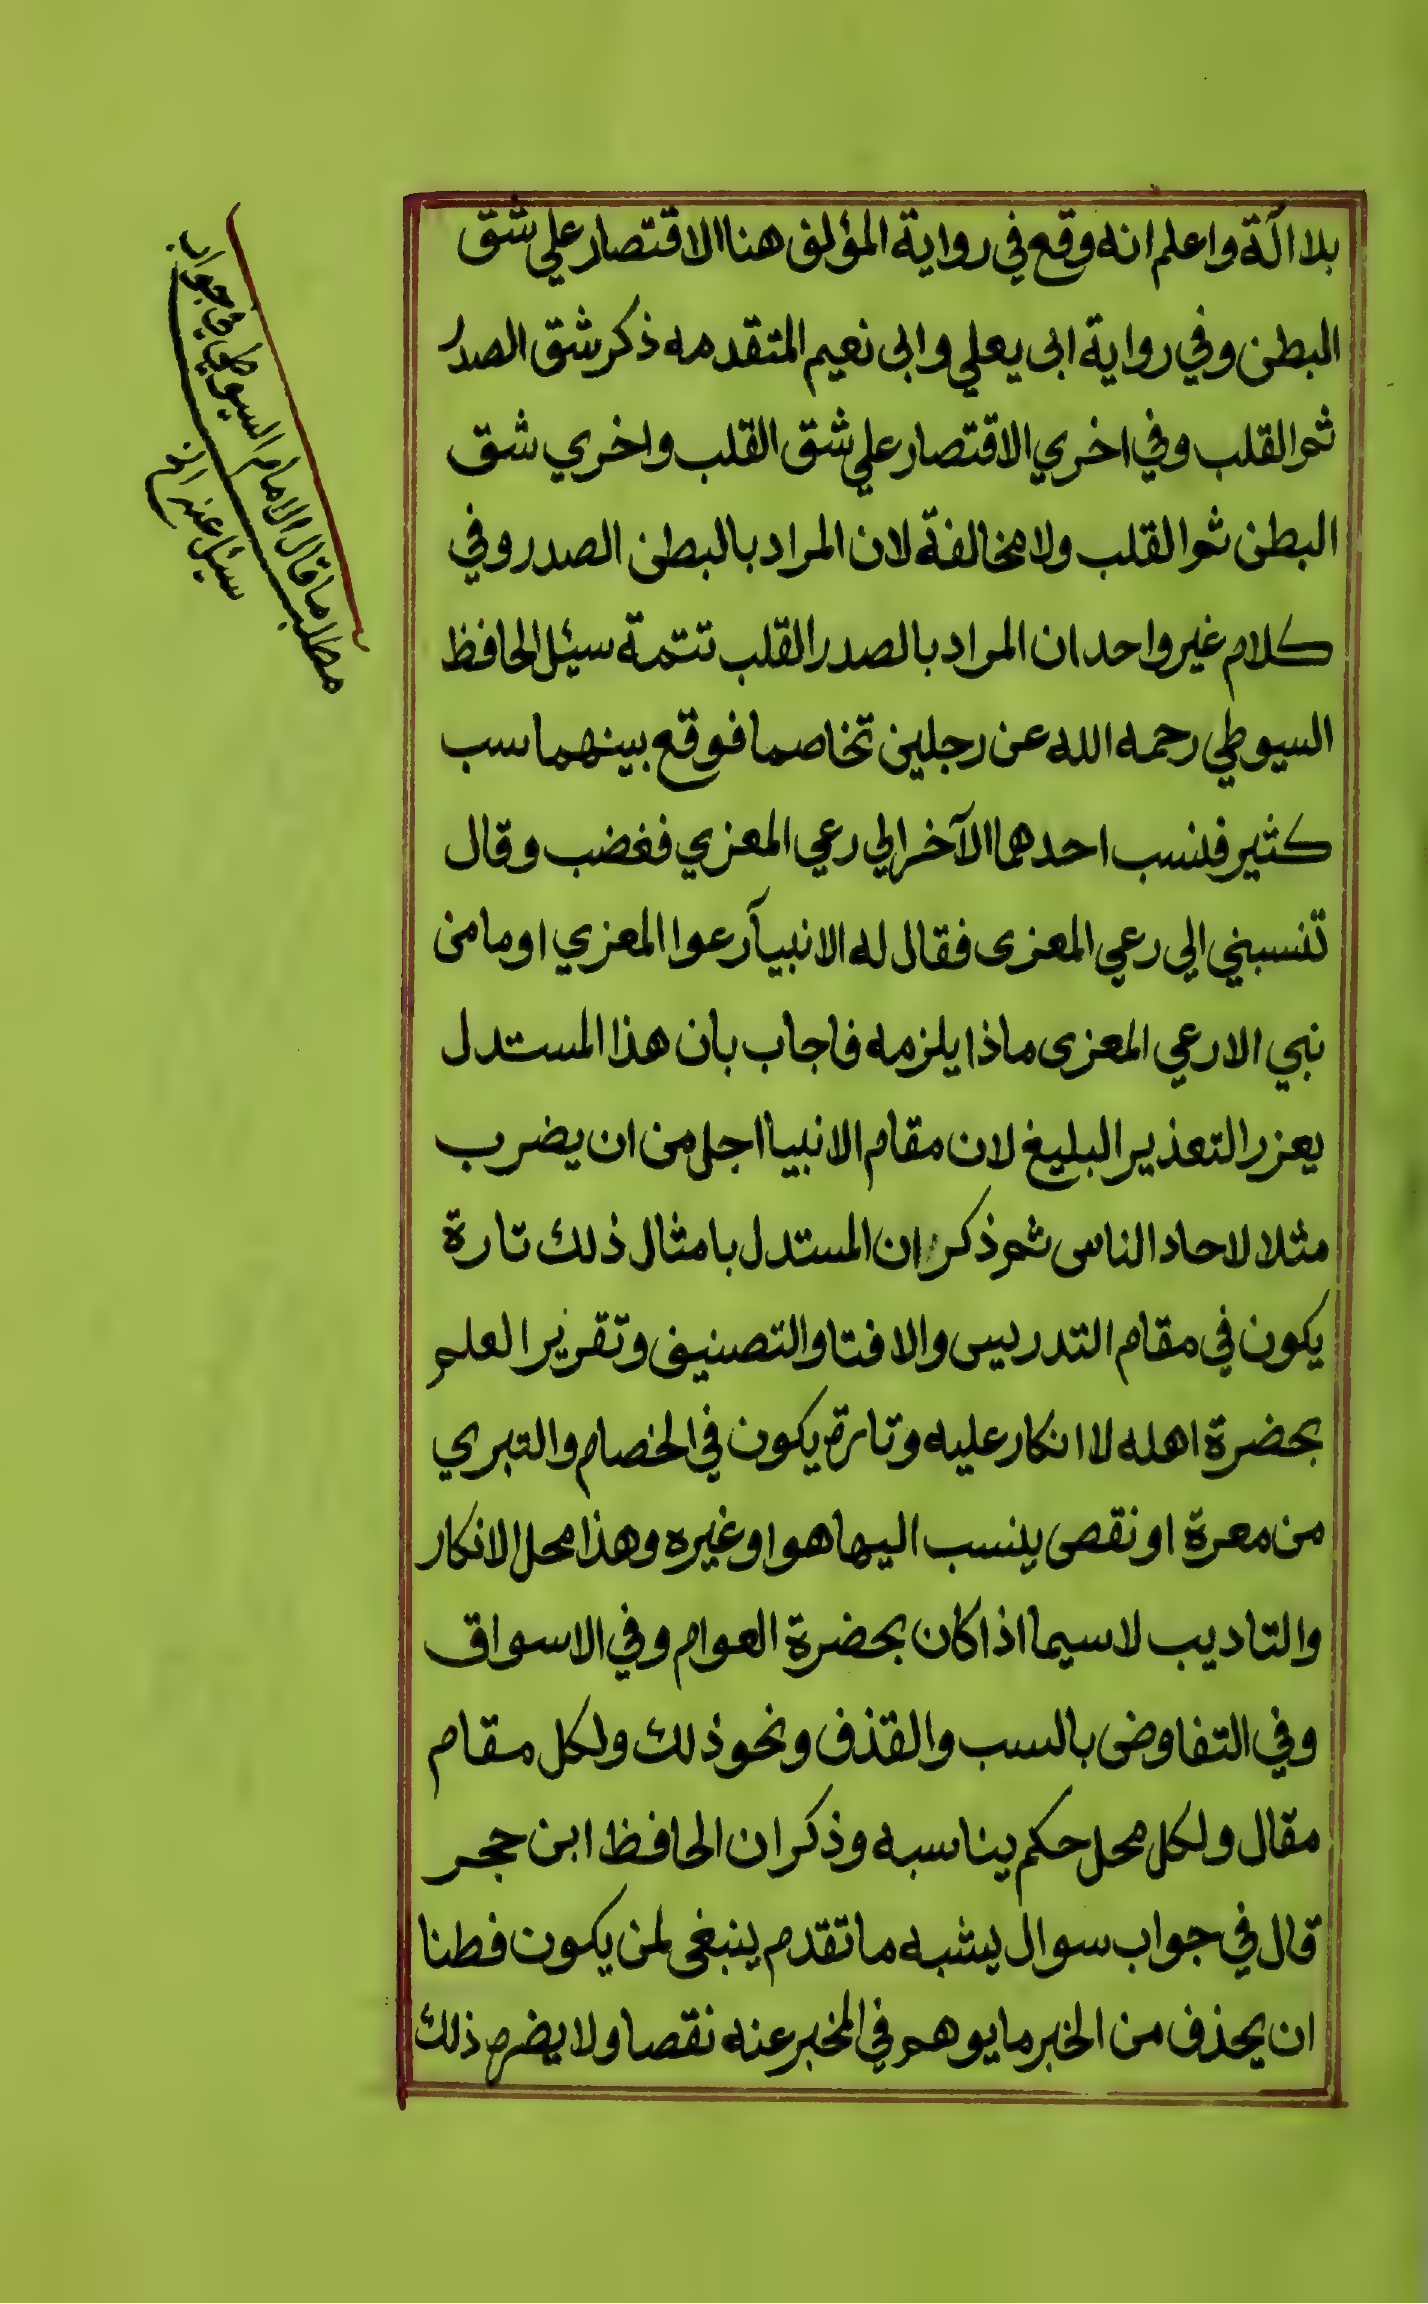 بلا الة واعلم انه وقع في رواية المؤلف هنا الاقتصار علي شق
البطن وفي رواية ابى يعلي وابى نعيم المتقدمه ذكر شق الصدر
ثم القلب وفي اخري الاقتصار علي شق القلب واخري شق
البطن ثم القلب ولا مخالفة لان المراد بالبطن الصدر وفي
كلام غير واحد ان المراد بالصدر القلب تتمة سيئل الحافظ
السيوطي رحمه الله عن رجلين تخاصما فوقع بينهما سب
كثير فنسب احدهما الآخر الي رعي المعزي فغضب وقال
تنسبني الي رعي المعزى فقال له الانبيآ رعوا المعزي او ما من
نبي الا رعي المعزى ماذا يلزمه فاجاب بان هذا المستدل
يعزر التعذير البليغ لان مقام الانبيا اجل من ان يضرب
مثلا لاحاد الناس ثم ذكر ان المستدل بامثال ذلك تارة
يكون في مقام التدريس والافتا والتصنيف وتقرير العلم
بحضرة اهله لا انكار عليه وتارة يكون في الخصام والتبري
من معرة او نقص ينسب اليها هو او غيره وهذا محل الانكار
والتاديب لاسيما اذا كان بحضرة العوام وفي الاسواق
وفي التفاوض بالسب والقذف ونحو ذلك ولكل مقام
مقال ولكل محل حكم يناسبه وذكر ان الحافظ ابن حجر
قال في جواب سوال يشبه ما تقدم ينبغي لمن يكون فطنا
ان يحذف من الخبر ما يوهم في المخبر عنه نقصا ولا يضر ذلك
مطلب ما قال الامام السيوطي في جواب
سئل عنه الخ